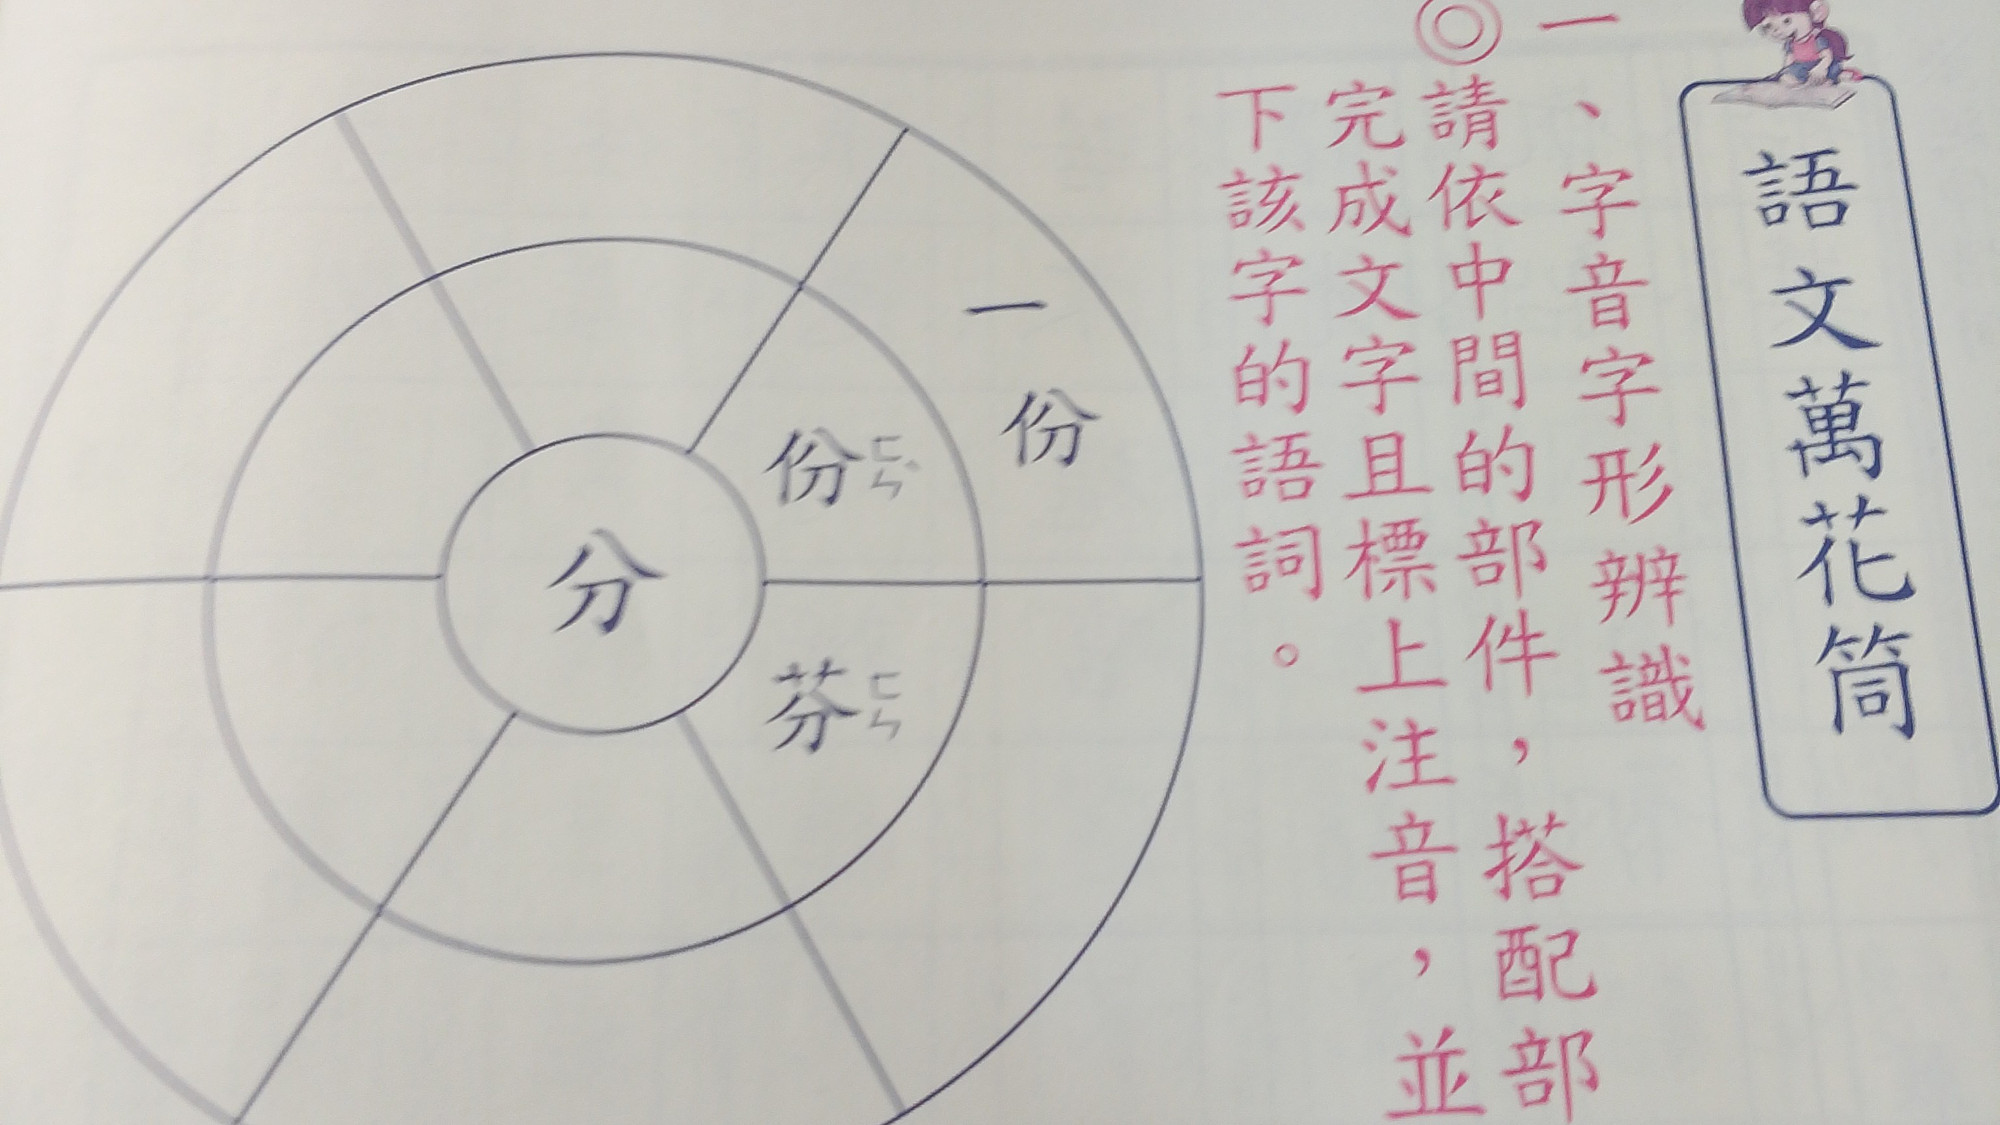 語文萬花筒
一、字音字形辨識
◎請依中間的部件，搭配部
完成文字且標上注音，並
下該字的語詞。
一份
份ㄈㄣˋ
分
芬ㄈㄣ